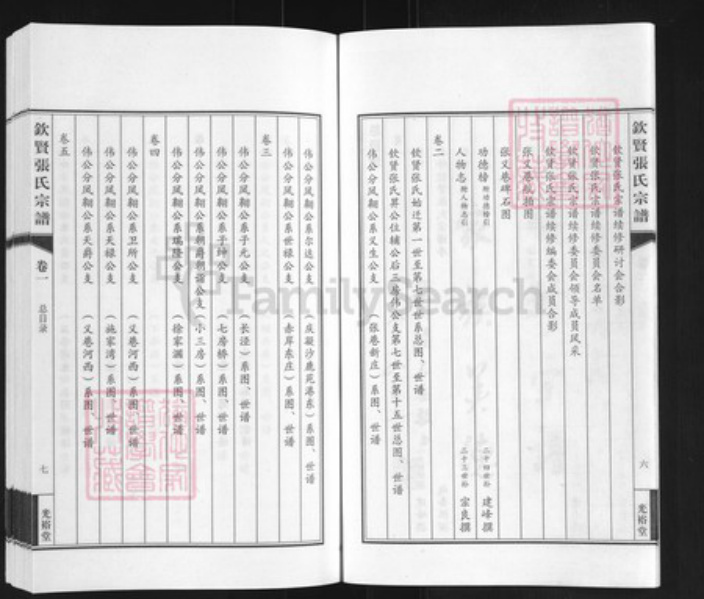 欽賢張氏宗譜
六
光裕堂
钦贤张氏宗谱续修研讨会合影
钦贤张氏宗谱续修委员会名单
钦贤张氏宗谱续修委员会领导成员风采
钦贤张氏宗谱续修编委会成员合影
张义巷航拍图
张义巷碑石图
功德榜 附功德榜引 二十四世孙 建峰撰
人物志 附人物志引 二十三世孙 宗良撰
卷二
钦贤张氏始迁第一世至第七世世系总图、世谱
钦贤张氏昇公位辅公后三房伟公支第七世至第十五世总图、世谱
伟公分凤翱公系义生公支 （张巷新庄）系图、世谱
伟公分凤翱公系尔达公支 （庆凝沙鹿苑港东）系图、世谱
伟公分凤翱公系世禄公支 （赤岸东庄）系图、世谱
卷三
伟公分凤翱公系子元公支 （长泾）系图、世谱
伟公分凤翱公系子坤公支 （七房桥）系图、世谱
伟公分凤翱公系朝爵朝谐公支（小三房）系图、世谱
伟公分凤翱公系瑞隆公支 （徐家湖）系图、世谱
卷四
伟公分凤翱公系卫所公支 （义巷河西）系图、世谱
伟公分凤翱公系天禄公支 （施家湾）系图、世谱
伟公分凤翱公系天爵公支 （义巷河西）系图、世谱
卷五
欽賢張氏宗譜
卷一
总目录
七
光裕堂
FamilySearch